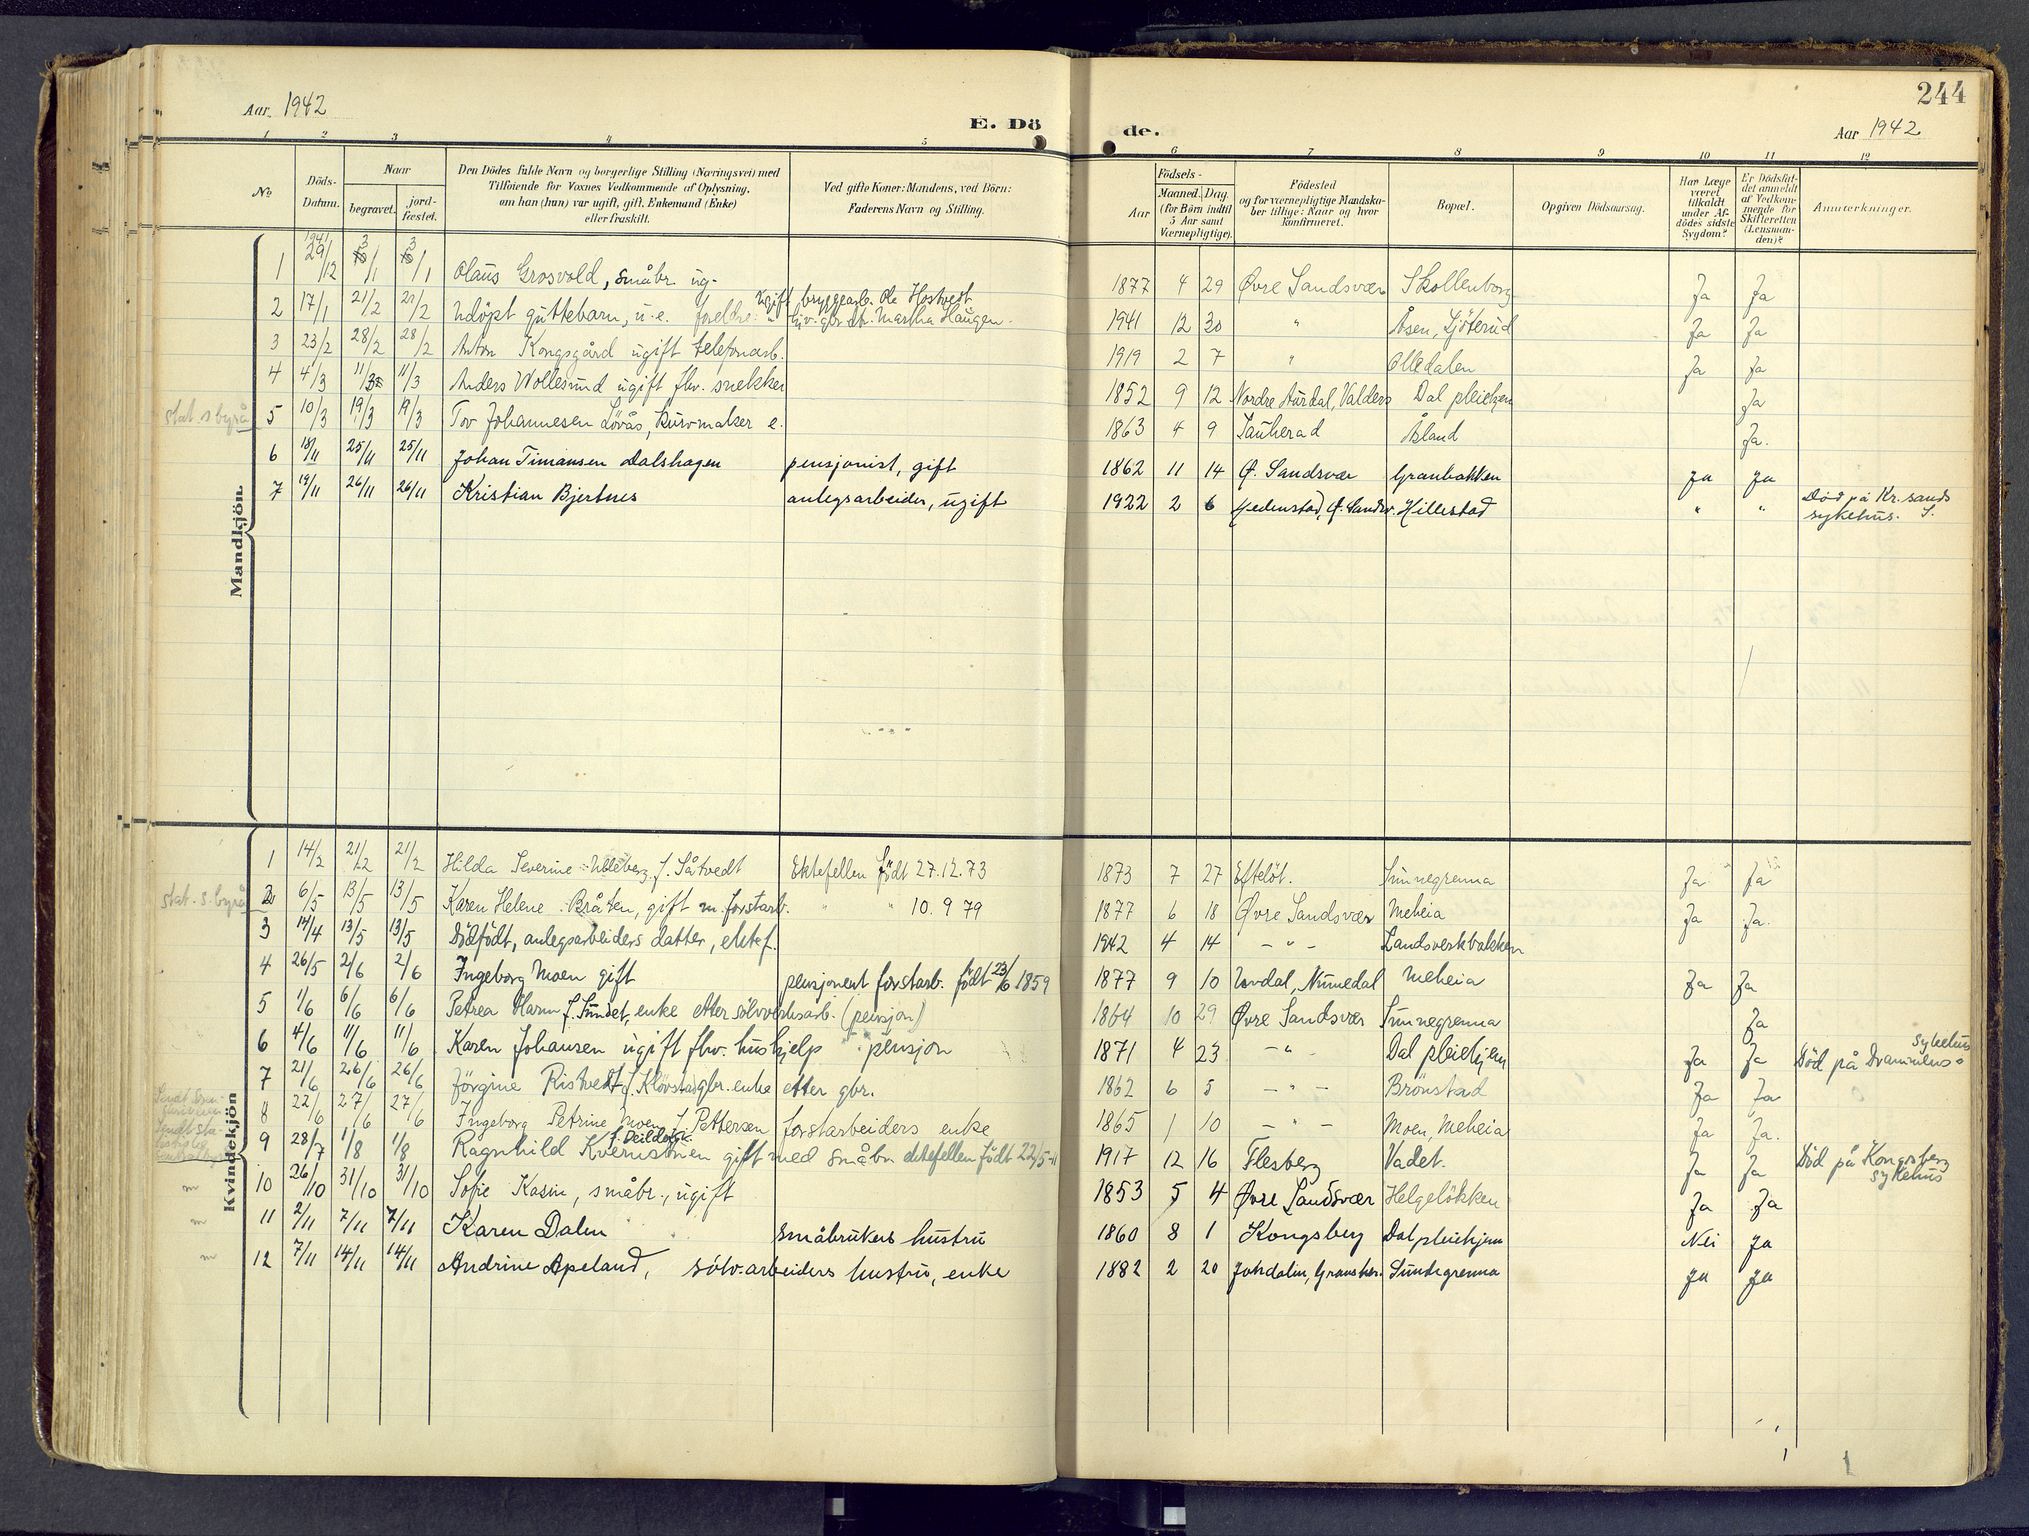 244
Aar. 1942
E. Dö de.
Aar 1942
1 2 3 4 5 6 7 8 9 10 11 12
No.
Döds-Datum.
Naar
begravet.
jord-fæstet.
Den Dödes fulde Navn og borgerlige Stilling (Næringsvei) med
Tilföiende for Voxnes Vedkommende af Oplysning.
om han (hun) var ugift, gift, Enkemand (Enke)
eller fraskilt.
Ved gifte Koner: Mandens, ved Börn:
Faderens Navn og Stilling.
Födsels-
Aar
Maaned. Dag.
(for Börn indtil
5 Aar samt
Værnepligtige).
Födested
og for værnepligtige Mandska-
ber tillige: Naar og hvor
konfirmeret.
Bopæl.
Opgiven Dödsaarsag.
Har Læge
været
tilkaldt
under Af-
dödes sidste
Sygdom?
Er Dödsfal-
det anmeldt
af Vedkom-
mende for
Skifteretten
(Lensman-
den)?
Anmærkninger.
Mandkjön.
1 1941 29/12 3/1 3/1 Olaus Grosvold, småbr. ug. 1877 4 29 Øvre Sandsvær Skollenborg Ja Ja
2 17/1 21/2 21/2 Udöpt guttebarn, u.e. foreldre: ugift bryggearb. Ole Hostvedt
Martha Haugen. 1941 12 30 " Åsen, Ljöterud Ja Ja
3 23/2 28/2 28/2 Anton Kongsgård ugift telefonarb. 1919 2 7 " Olledalen Ja Ja
4 4/3 11/3 11/3 Anders Wollesund ugift fhv. snekker 1852 9 12 Nordre Aurdal, Valdres Dal pleiehjem Ja
stat. s byrå 5 10/3 19/3 19/3 Tov Johannesen Lövås, kurvmaker e. 1863 4 9 Sauherad Åsland Ja.
6 18/11 25/11 25/11 Johan Timansen Dalshagen pensjonist, gift 1862 11 14 Ø. Sandsvær Granbakken Ja Ja
7 19/11 26/11 26/11 Kristian Bjertnes anlegsarbeider, ugift 1922 2 6 Hedenstad, Ø. Sandsv. Hillestad " " Död på Kr.sands
sykehus. S.
Kvindekjön
1 14/2 21/2 21/2 Hilda Severine Ulleberg f. Såtvedt Ektefellen födt 27.12.73 1873 7 27 Efteløt. Sunnegrenna Ja Ja
stat. s. byrå 2 6/5 13/5 13/5 Karen Helene Bråten, gift m. forstarb. " " 10. 9 79 1877 6 18 Øvre Sandsvær Meheia Ja Ja.
3 14/4 13/5 13/5 Dödfödt, anlegsarbeiders datter, ektef. 1942 4 14 - " - Landsverkbakken
4 26/5 2/6 2/6 Ingeborg Moen gift pensjonert forstarb. födt 23/6 1859 1877 9 10 Uvdal, Numedal Meheia Ja Ja
5 1/6 6/6 6/6 Petrea Hamn f. Sundet, enke etter sölvverksarb. (pensjon) 1864 10 29 Øvre Sandsvær Sunnegrenna Ja
6 4/6 11/6 11/6 Karen Johansen ugift fhv. hushjelp pensjon 1871 4 23 - " - Dal pleiehjem Ja Ja Död på Drammens
sykehus
7 21/6 26/6 26/6 Jörgine Ristvedt f. Klövstad gbr. enke etter gbr. 1862 6 5 - " - Brönstad Ja Ja
8 22/6 27/6 27/6 Ingeborg Petrine Moen f. Pettersen forstarbeiders enke 1865 1 10 - " - Moen, Meheia Ja Ja.
9 28/7 1/8 1/8 Ragnhild Kvernstuen gift med småbr. ektefellen födt 22/5-11 1917 12 16 Flesberg Vadet. Ja Ja Död på Kongsberg
sykehus
10 26/10 31/10 31/10 Sofie Kasin, småbr., ugift 1853 5 4 Øvre Sandsvær Helgelökken Ja Ja
11 2/11 7/11 7/11 Karen Dalen småbrukers hustru 1860 8 1 Kongsberg Dal pleiehjem Nei Ja
12 7/11 14/11 14/11 Andrine Apeland, sölv.arbeiders hustru, enke 1882 2 20 Jondalen, Gransher. Sundegrenna Ja Ja